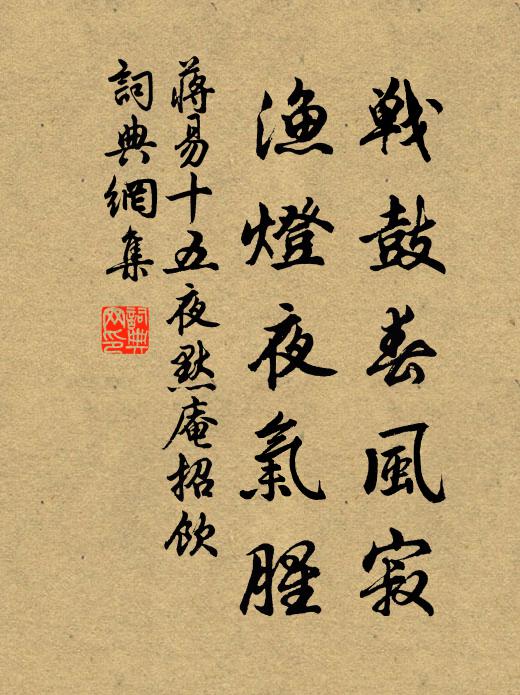 戰鼓春風寂
漁燈夜氣腥
蔣易十五夜默庵招飲
詞典網集
詞典
网印